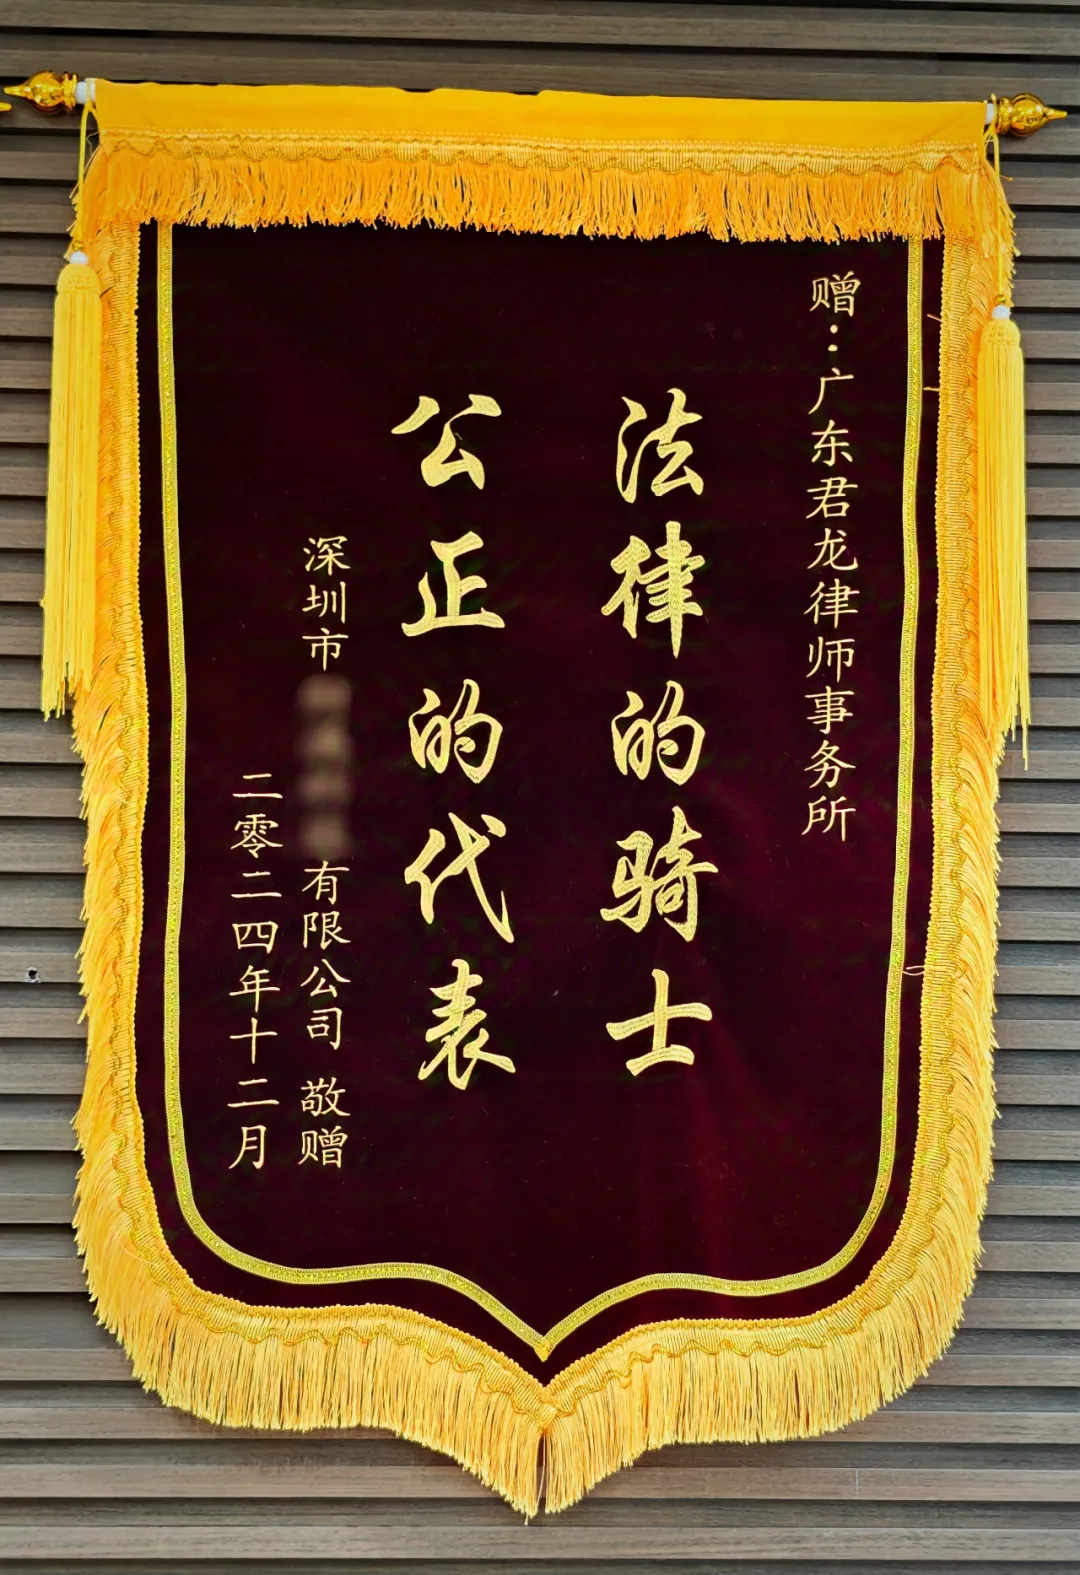 赠：广东君龙律师事务所
法律的骑士
公正的代表
深圳市有限公司 敬赠
二零二四年十二月